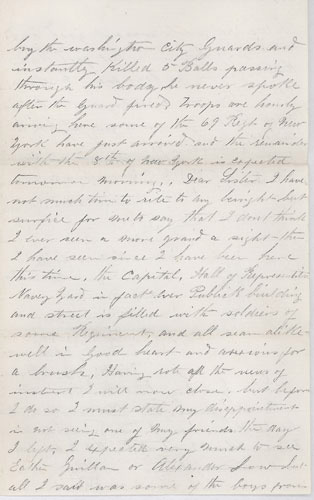 by the washington City Guards and
instantly Killed 5 Balls passing
through his body, he never spoke
after the Guard fired, Troops are hourly
arriving here some of the 69 Regt of New
York have just arrived and the remainder
with the 8th of New York is expected
tomorrow morning, Dear Sister I have
not much time to rite to any but
surfice for me to say that I dont think
I ever seen a more grand a sight then
I have seen since I have been here
this time, the Capitol, Hall of Represen
Navey Yard in fact ever Publick building
and street is filled with soldiers of
some Regiment, and all seam alike
well in Good heart and anxious for
a brush, Having rote all the news of
instrest I will now close, but before
I do so I must state my disappointment
in not seeing one of my friends the day
I left, I expected very much to see
Quillan or Alexander Low but
all I said was some of the boys from